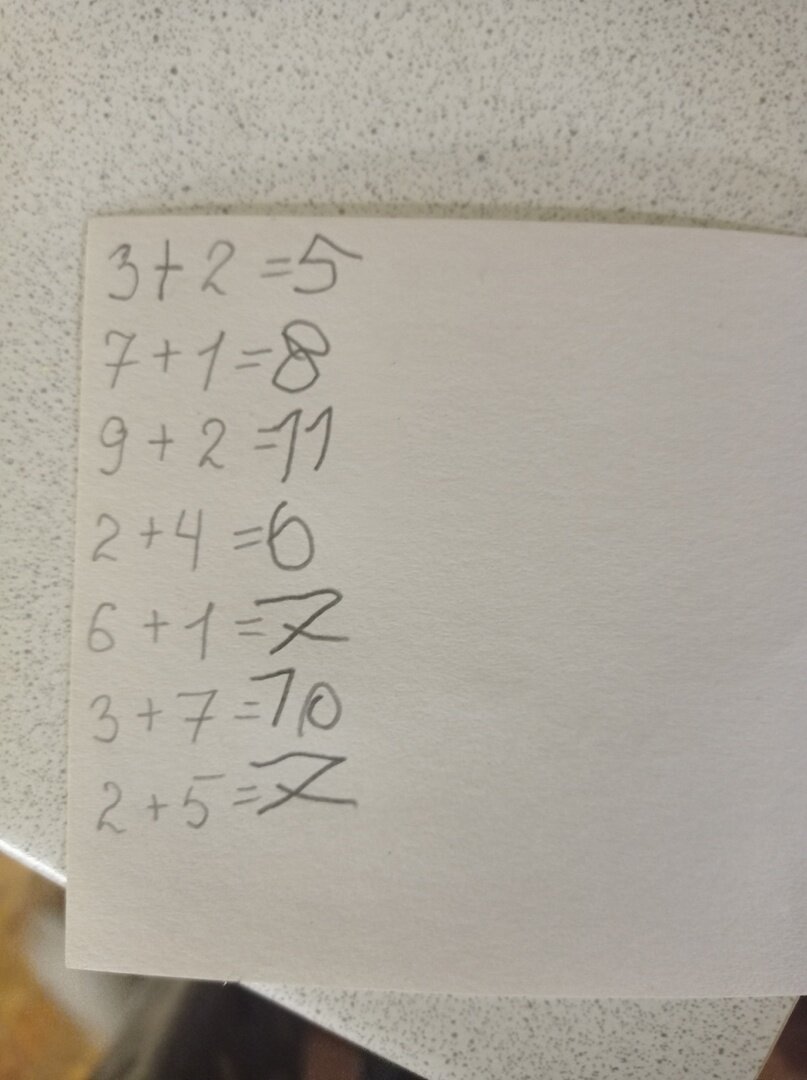 3+2=5
7+1=8
9+2=11
2+4=6
6+1=7
3+7=10
2+5=7